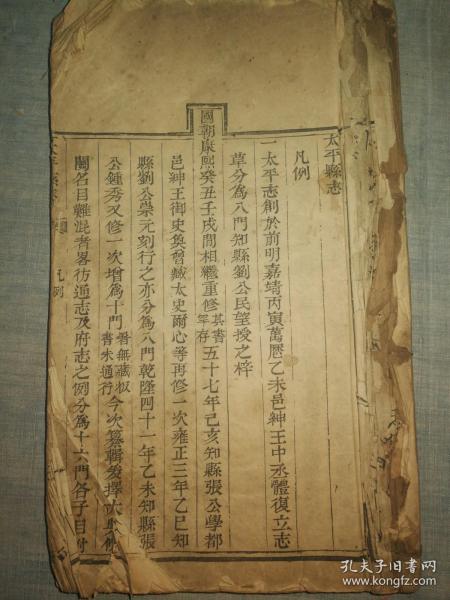 太平縣志
凡例
一太平志創於前明嘉靖丙寅萬曆乙未邑紳王中丞體復立志
草分為八門知縣劉公民望授之梓
國朝康熙癸丑壬戌間相繼重修其書罕存五十七年己亥知縣張公學都
邑紳王御史奐曾臧太史爾心等再修一次雍正三年乙巳知
縣劉公崇元刻行之亦分為八門乾隆四十一年乙未知縣張
公鍾秀又修一次增為十門署無藏板書未通行今次纂輯爰擇
闔名目雜混者畧彷通志及府志之例分為十六門各子目附
凡例
孔夫子旧书网
www.kongfz.com